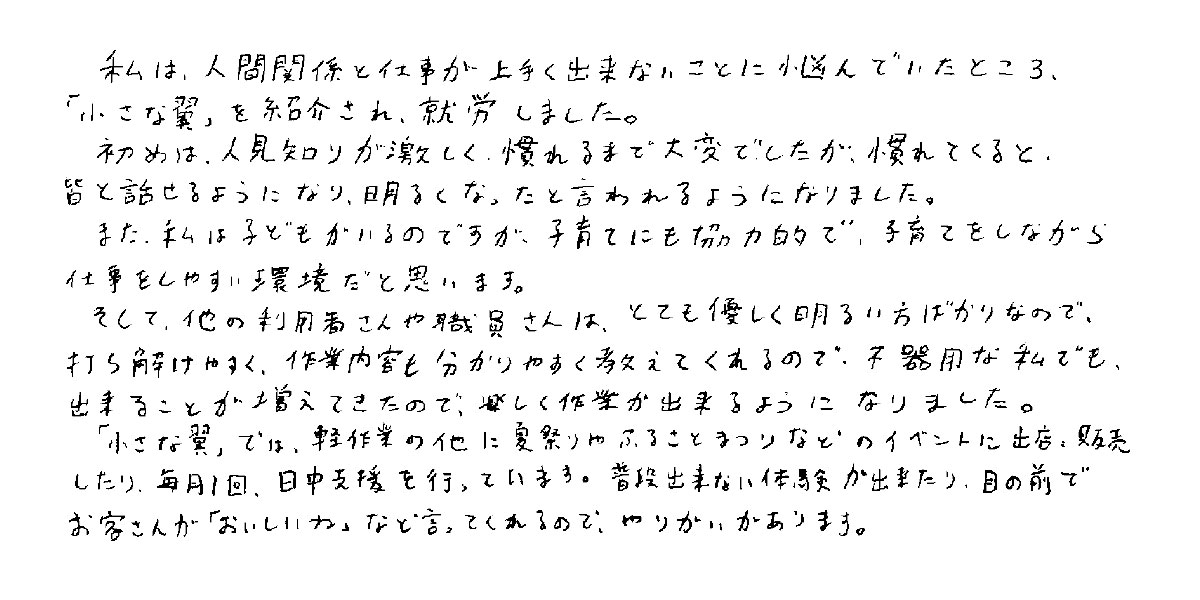 私は、人間関係と仕事が上手く出来ないことに悩んでいたところ、
「小さな翼」を紹介され、就労しました。
初めは、人見知りが激しく、慣れるまで大変でしたが、慣れてくると、
皆と話せるようになり、明るくなったと言われるようになりました。
また、私は子どもがいるのですが、子育てにも協力的で、子育てをしながら
仕事をしやすい環境だと思います。
そして、他の利用者さんや職員さんは、とても優しく明るい方ばかりなので、
打ち解けやすく、作業内容も分かりやすく教えてくれるので、不器用な私でも、
出来ることが増えてきたので、楽しく作業が出来るようになりました。
「小さな翼」では、軽作業の他に夏祭りやふるさとまつりなどのイベントに出店・販売
したり、毎月1回、日中支援を行っています。普段出来ない体験が出来たり、目の前で
お客さんが「おいしいね」など言ってくれるので、やりがいがあります。